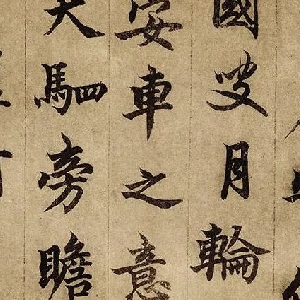 國叟月輪
安車之意
天駟旁瞻